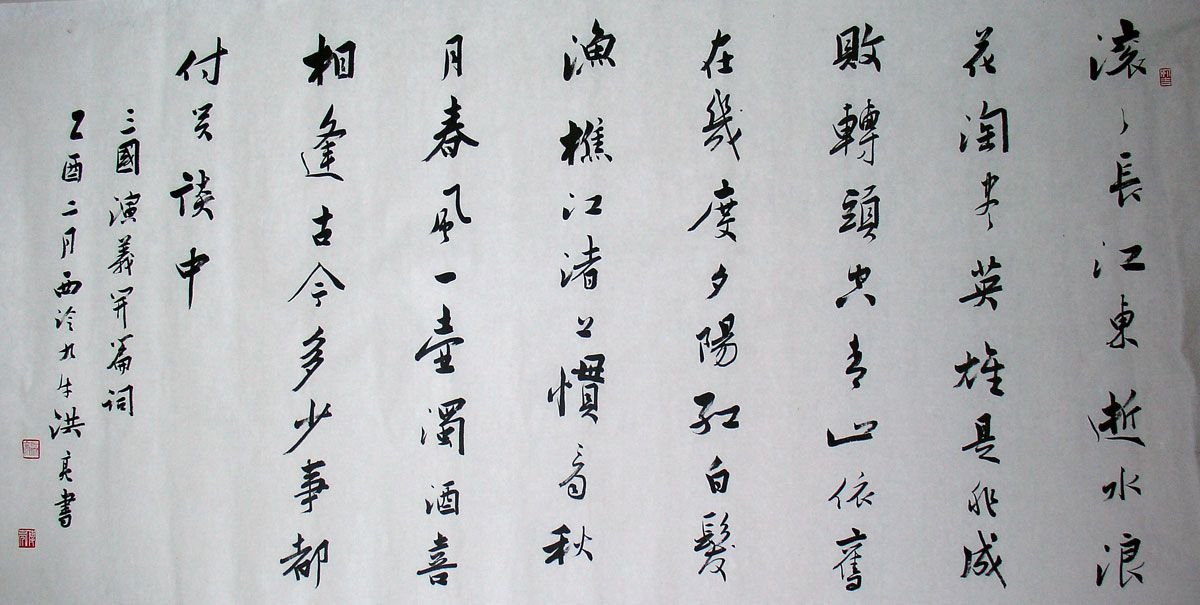 滚々長江東逝水浪
花淘尽英雄是非成
敗轉頭空青山依舊
在幾度夕陽紅白髮
漁樵江渚上慣看秋
月春風一壺濁酒喜
相逢古今多少事都
付笑談中
三國演義開篇詞
乙酉二月西泠九牛洪亮書